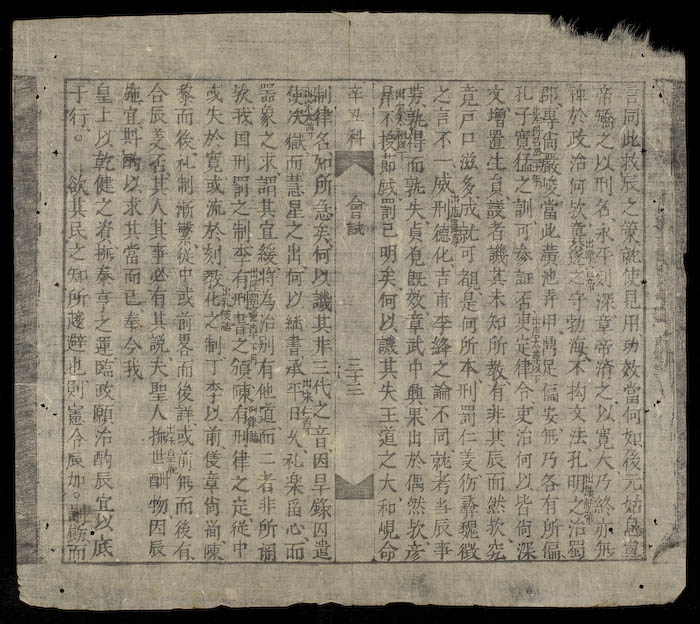 言同此救辰之策就使見用功效當何如後元姑息宣
帝矯之以刑名永平刻深章帝濟之以寬大乃終亦無
裨於政治何歟龔遂之守勃海不拘文法孔明之治蜀
郡專尚嚴峻當此潢池弄甲鼎足偏安無乃各有所偏
孔子寬猛之訓可參証否更定律令吏治何以皆尚深
文增置生員議者譏其未知所教有非其辰而然歟究
竟戶口滋多成就可觀是何所本刑罰仁義彷彝
之言不一威刑德化吉甫李絳之論不同就考當辰事
勢孰得而孰失貞觀既效章武中興果出於偶然歟彥
昇不授節鉞罰已明矣何以譏其失王道之大和峴命
辛丑科 會試 三十三
制律名知所急矣何以譏其非三代之音因旱錄囚遣
使決獄而慧星之出何以紲書承平日久礼樂留心而
器象之求謂其宜緩將為治別有他道而二者非所關
歟我国刑罰之制李有刑書之頒陳有刑律之定從中
或失於寬或流於刻教化之制丁李以前僿章尚簡陳
黎而後礼制漸繁從中或前畧而後詳或前無而後有
合辰義否其人其事必有其說夫聖人撫世酬物因辰
施宜斟酌以求其當而已奉今我
皇上以乾健之資撫泰亨之運臨政願治酌辰宜以底
于行。欲其民之知所避也則憲令辰加。飭而